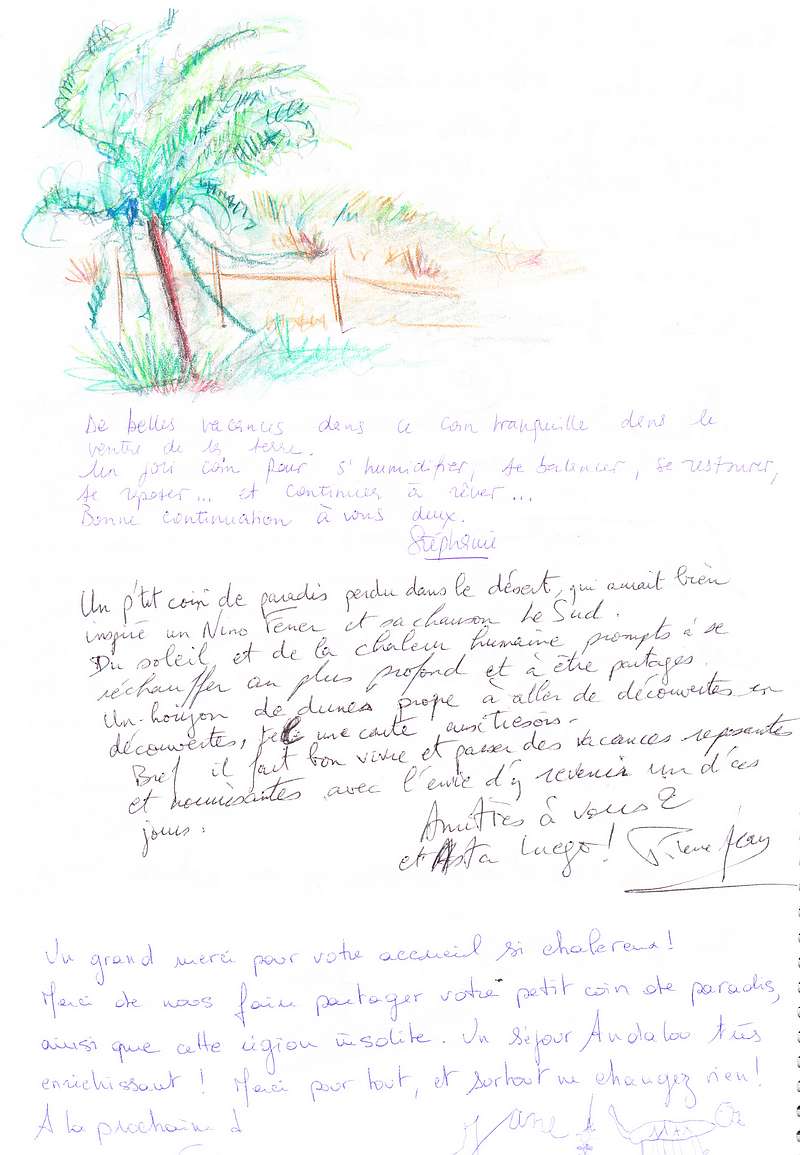 De belles vacances dans ce coin tranquille dans le
ventre de la terre.
Un joli coin pour s'humidifier, se balancer, se restaurer,
se reposer... et continuer à rêver...
Bonne continuation à vous deux.
Stéphanie
Un p'tit coin de paradis perdu dans le désert, qui aurait bien
inspiré un Nino Ferrer et sa chanson Le Sud.
Du soleil et de la chaleur humaine prompts à se
réchauffer au plus profond et à être partagés.
Un horizon de dunes propre à aller de découvertes en
découvertes, tel une carte aux trésors.
Bref il fait bon vivre et passer des vacances reposantes
et nourrissantes avec l'envie d'y revenir un d'ces
jours.
Amitiés à vous 2
et Asta luego! Pierre Jean
Un grand merci pour votre accueil si chaleureux!
Merci de nous faire partager votre petit coin de paradis,
ainsi que cette région insolite. Un séjour Andalou très
enrichissant! Merci pour tout, et surtout ne changez rien!
A la prochaine!